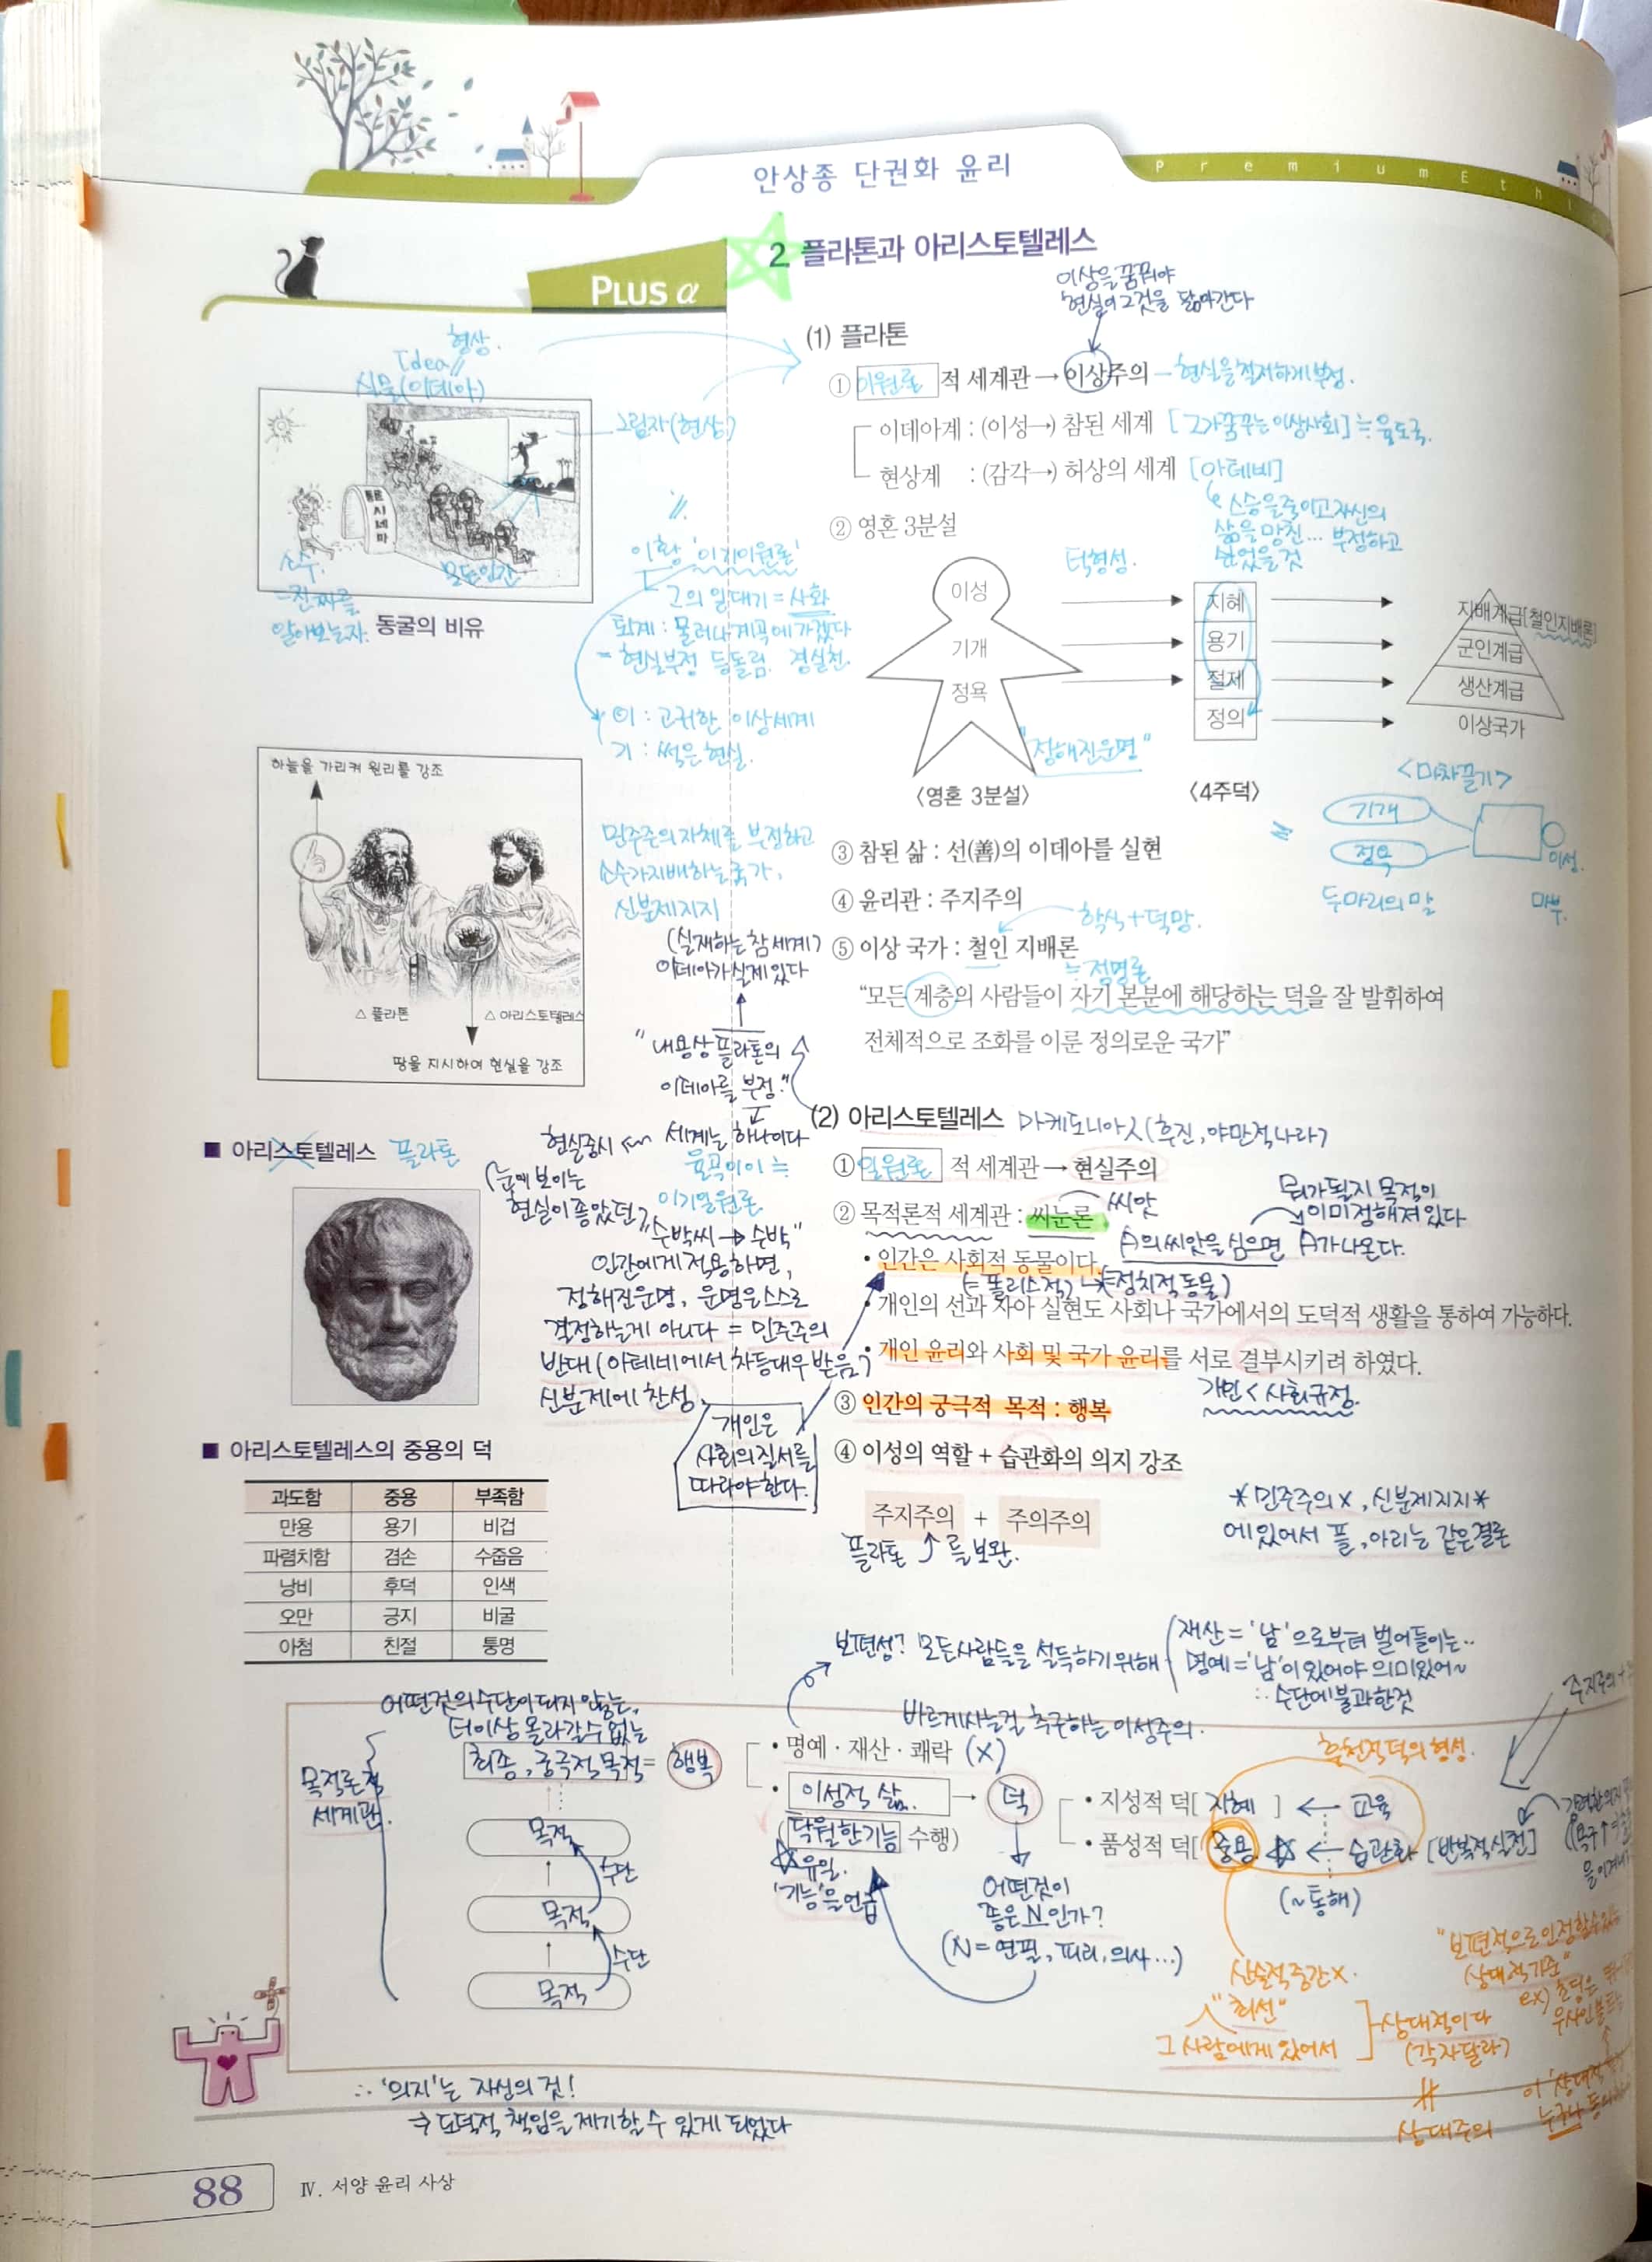 안상종 단권화 윤리
Premium Ethi
PLUS α
형상.
Idea
실물(이데아)
그림자(현상)
동굴시네마
소수.
모든인간
-진짜를
알아보는자.
동굴의 비유
이황 '이기이원론'
그의 일대기 = 사화
퇴계 : 물러나 계곡에 가겠다
= 현실부정 등돌림.
이 : 고귀한 이상세계
기 : 썩은 현실.
하늘을 가리켜 원리를 강조
△ 플라톤
△ 아리스토텔레스
땅을 지시하여 현실을 강조
민주주의 자체를 부정하고
소수가 지배하는 국가,
신분제 지지
(실재하는 참세계)
이데아가 실제 있다
"내용상 플라톤의
이데아를 부정."
현실중시 세계는 하나이다
(눈에 보이는
현실이 좋았던)
율곡이이 ≒
이기일원론
"수박씨 → 수박"
인간에게 적용하면,
정해진운명, 운명은 스스로
결정하는게 아니다 = 민주주의
반대 (아테네에서 차등대우 받음)
신분제에 찬성
개인은
사회의 질서를
따라야한다.
■ 아리스토텔레스 플라톤
■ 아리스토텔레스의 중용의 덕
과도함 중용 부족함
만용 용기 비겁
파렴치함 겸손 수줍음
낭비 후덕 인색
오만 긍지 비굴
아첨 친절 퉁명
2 플라톤과 아리스토텔레스
이상을 꿈꿔야
현실이 그것을 닮아간다
(1) 플라톤
① 이원론 적 세계관 → 이상주의 - 현실을 철저하게 부정.
이데아계 : (이성→) 참된 세계 [그가 꿈꾸는 이상사회] ≒ 율도국.
현상계 : (감각→) 허상의 세계 [아테네]
스승을 죽이고 자신의
삶을 망친... 부정하고
싶었을 것
② 영혼 3분설
덕형성.
이성
기개
정욕
지혜
용기
절제
정의
지배계급[철인지배론]
군인계급
생산계급
이상국가
"정해진운명"
〈영혼 3분설〉
〈4주덕〉
<마차끌기>
기개
정욕
이성.
두마리의 말
마부.
③ 참된 삶 : 선(善)의 이데아를 실현
④ 윤리관 : 주지주의
학식+덕망.
⑤ 이상 국가 : 철인 지배론
≒ 정명론
“모든 계층의 사람들이 자기 본분에 해당하는 덕을 잘 발휘하여
전체적으로 조화를 이룬 정의로운 국가”
(2) 아리스토텔레스 마케도니아人 (후진, 야만적나라)
① 일원론 적 세계관 → 현실주의
② 목적론적 세계관 : 씨눈론
씨앗
뭐가 될지 목적이
이미 정해져 있다
A의 씨앗을 심으면 A가 나온다.
• 인간은 사회적 동물이다.
(=폴리스적) (=정치적동물)
• 개인의 선과 자아 실현도 사회나 국가에서의 도덕적 생활을 통하여 가능하다.
• 개인 윤리와 사회 및 국가 윤리를 서로 결부시키려 하였다.
개인 < 사회규정.
③ 인간의 궁극적 목적 : 행복
④ 이성의 역할 + 습관화의 의지 강조
주지주의 + 주의주의
플라톤 ↑를 보완.
*민주주의 X, 신분제 지지*
에 있어서 플, 아리는 같은 결론
보편성? 모든사람들을 설득하기 위해
재산 = '남'으로부터 벌어들이는..
명예 = '남'이 있어야 의미있어~
∴ 수단에 불과한것
어떤것의 수단이 되지 않는,
더이상 올라갈수 없는
최종, 궁극적 목적 = 행복
목적론적
세계관
목적
수단
목적
수단
목적
바르게사는걸 추구하는 이성주의.
• 명예 · 재산 · 쾌락 (X)
• 이성적 삶. → 덕
(탁월한기능 수행)
유일.
'기능'을 언급
어떤것이
좋은 N인가?
(N = 연필, 피리, 의사...)
주지주의 +
후천적 덕의 형성.
• 지성적 덕[ 지혜 ] ← 교육
• 품성적 덕[ 중용 ← 습관화 [반복적실천]
(~통해)
산술적 중간 X.
"최선"
그 사람에게 있어서
상대적이다
(각자 달라)
상대주의
"보편적으로 인정할수있는
상대적기준"
ex) 초딩은
∴ '의지'는 자성의 것!
⇒ 도덕적 책임을 제기할 수 있게 되었다
88 Ⅳ. 서양 윤리 사상